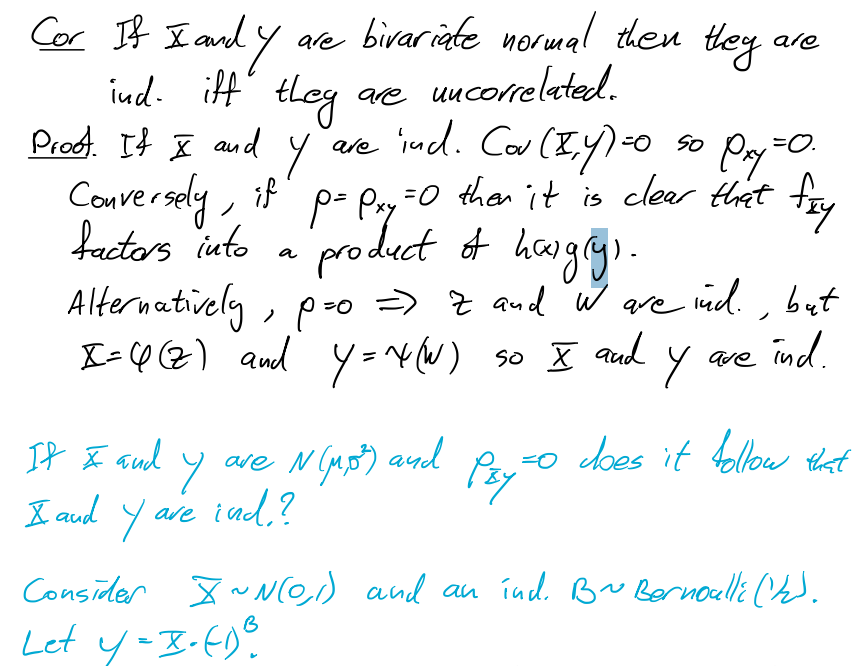 Cor If X and Y are bivariate normal then they are
ind. iff they are uncorrelated.
Proof. If X and Y are ind. Cov(X,Y)=0 so ρ_XY=0.
Conversely, if ρ=ρ_XY=0 then it is clear that f_XY
factors into a product of h(x)g(y).
Alternatively, ρ=0 ⇒ Z and W are ind., but
X=φ(Z) and Y=ψ(W) so X and Y are ind.
If X and Y are N(μ,σ²) and ρ_XY=0 does it follow that
X and Y are ind.?
Consider X~N(0,1) and an ind. B~Bernoulli(½).
Let Y=X·(-1)^B.